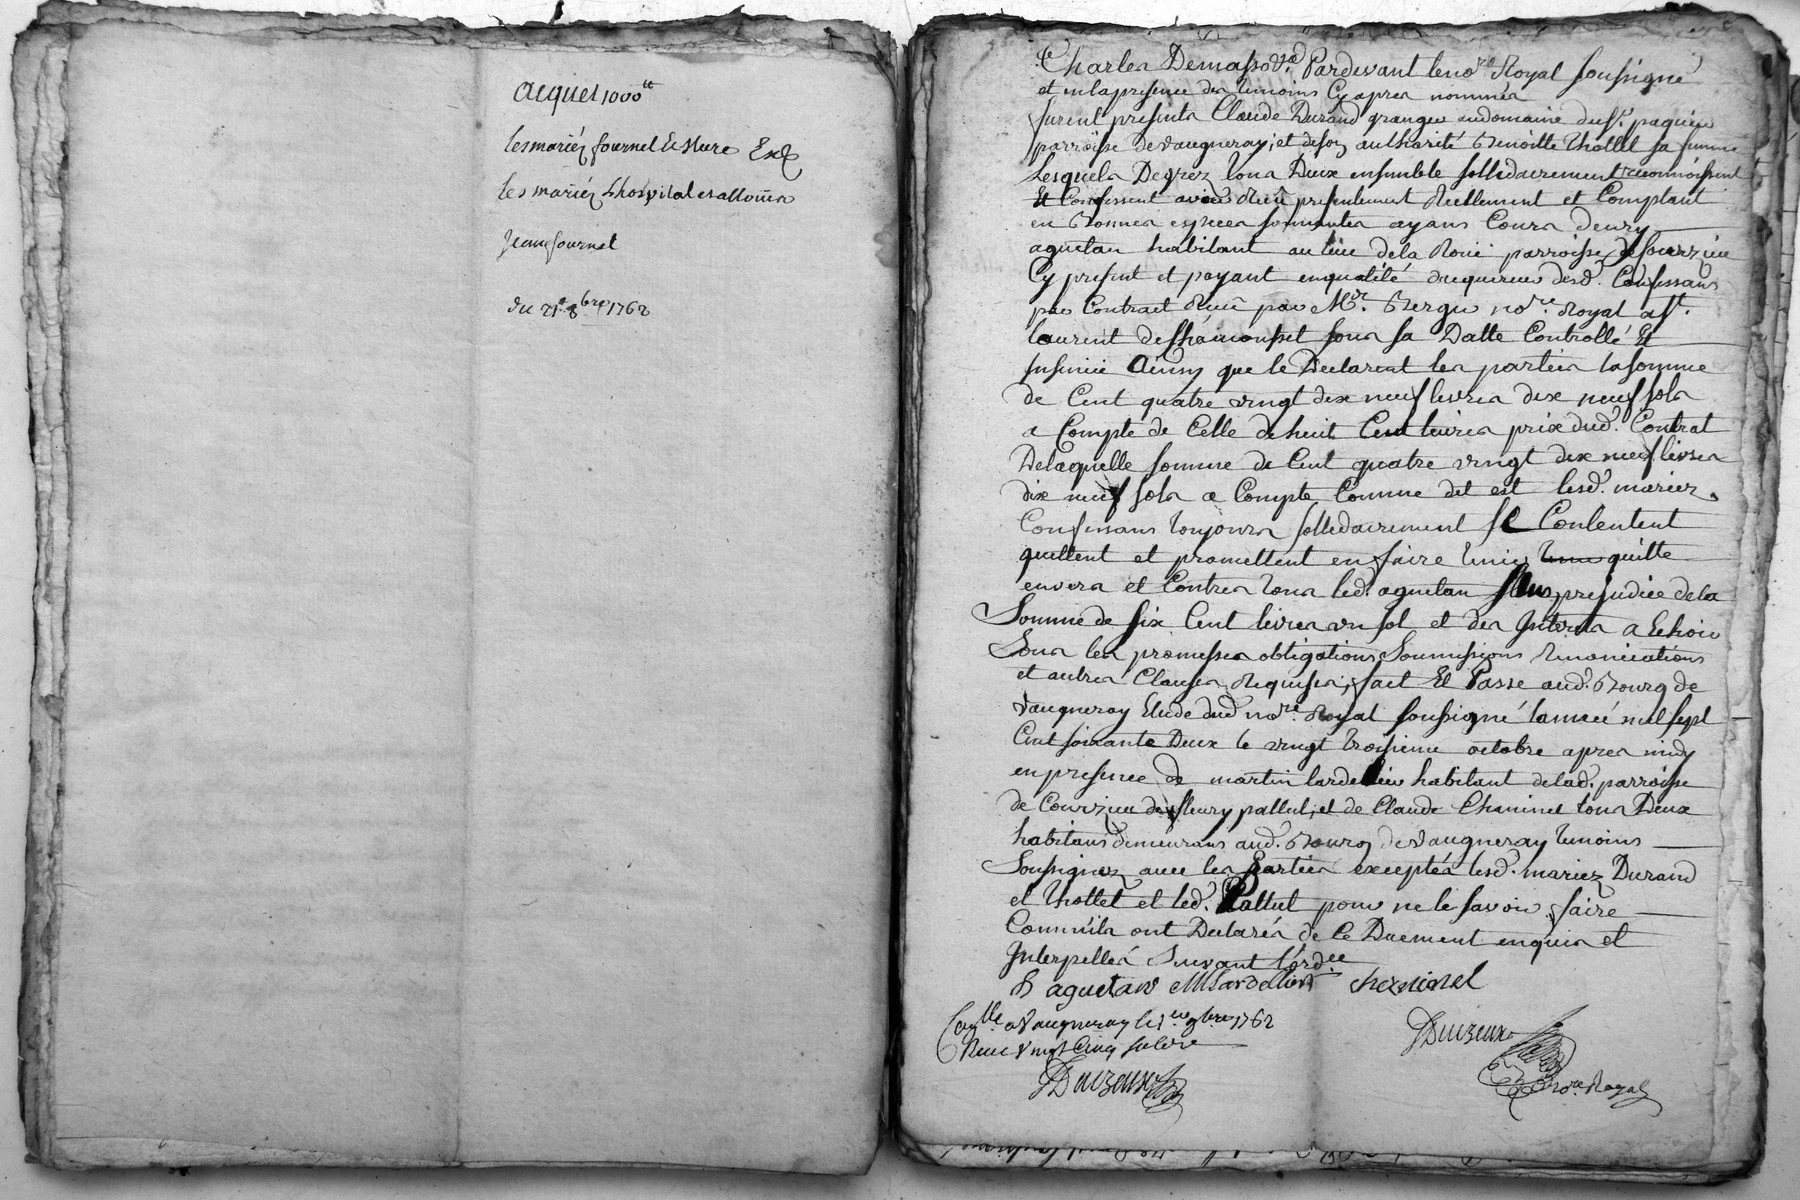 acquet 1000ᵗᵗ
les mariéz fournel & Mure Exd
les mariéz Lhospital et allouin a
Jean fournel
du 21e 8bre 1762
Pardevant le nore Royal soussigné
et en la presence des temoins Cy apres nommés
furent presents Claude Durand granger au domaine du sr. paquier
parroisse de Vaugneray, et de son authorité Benoitte Thollet sa femme
Lesquels De grez tous Deux ensemble sollidairement reconnoissent
Et Confessent avoir Reçû presentement Reellement et Comptant
en Bonnes especes sonnantes ayans Cours de
aguetan habitant au lieu de la Roüe parroisse de Courzieu
Cy present et payant en qualité d'acquereur desd. Confessans
par Contract Reçu par Mr. Berger nore. Royal a st.
laurent de Chamousset sous sa Datte Controllé Et
Insinüé Ainsy que le Declarent les parties la somme
de Cent quatre vingt dix neuf livres dix neuf sols
a Compte de Celle de huit Cent livres prix dud. Contrat
De laquelle somme de Cent quatre vingt dix neuf livres
dix neuf sols a Compte Comme dit est lesd. mariez
Confessans toujours sollidairement se Contentent
quittent et promettent en faire tenir quitte
envers et Contres tous led. aguetan sans prejudice de la
Somme de six Cent livres un sol et des Interets a Echoir
Sous les promesses obligations Soumissions Renonciations
et autres Clauses Requises, fait Et Passé aud. Bourg de
Vaugneray Etude dud nore. Royal soussigné l'année mil sept
Cent soixante Deux le vingt troisieme octobre apres midy
en presence de martin lardellier habitant de lad. parroisse
de Courzieu de fleury pallut, et de Claude Chaminet tous Deux
habitans demeurans aud. Bourg de Vaugneray temoins
Soussignez avec les Parties exceptés lesd. mariez Durand
et Thollet et led. Pallut pour ne le savoir faire
Comm'ils ont Declarés de Ce Duement enquis et
Interpellés Suivant l'ordce
aguetant M Lardellier cheminel
Conlle a Vaugneray le 1er 9bre 1762
Reçu Vingt Cinq sols
Duizeux
Duizeux
nore Royal